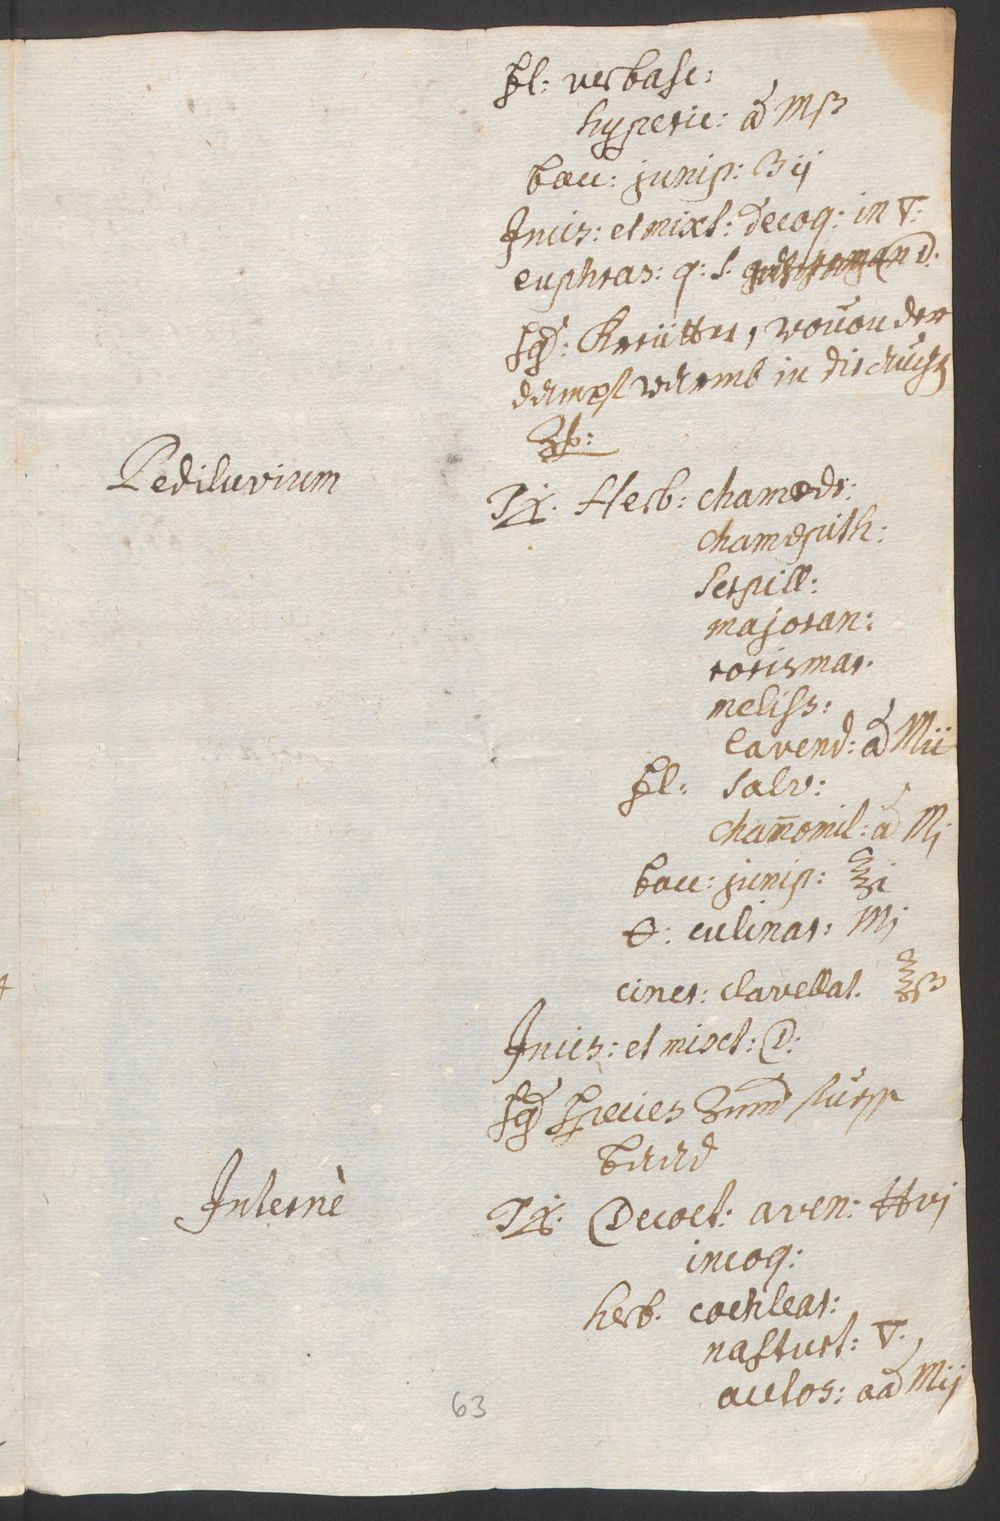 fl: verbasc:
hyperic: ā Mß
bacc: junip: ʒij
Incis: et mixt: decoq: in ▽:
euphras: q: s. D:
Sig: Kreütter, vovon der
dampf warmb in die
Pediluvium
Rx. Herb: chamædr:
chamæpith:
Serpill:
majoran:
rorismar.
meliss:
lavend: ā Mii
fl: salv:
cham̄omil: ā Mj
bacc: junip: ℥i
🜔: culinar: Mj
ciner: clavellat. ℥ß
Incis: et mixt: D:
Sig Species Zum fuesß
baad
Internè
Rx. Decoct: aven: ℔vj
incoq:
herb. cochlear:
nasturt: ▽.
acetos: aā Mij
63